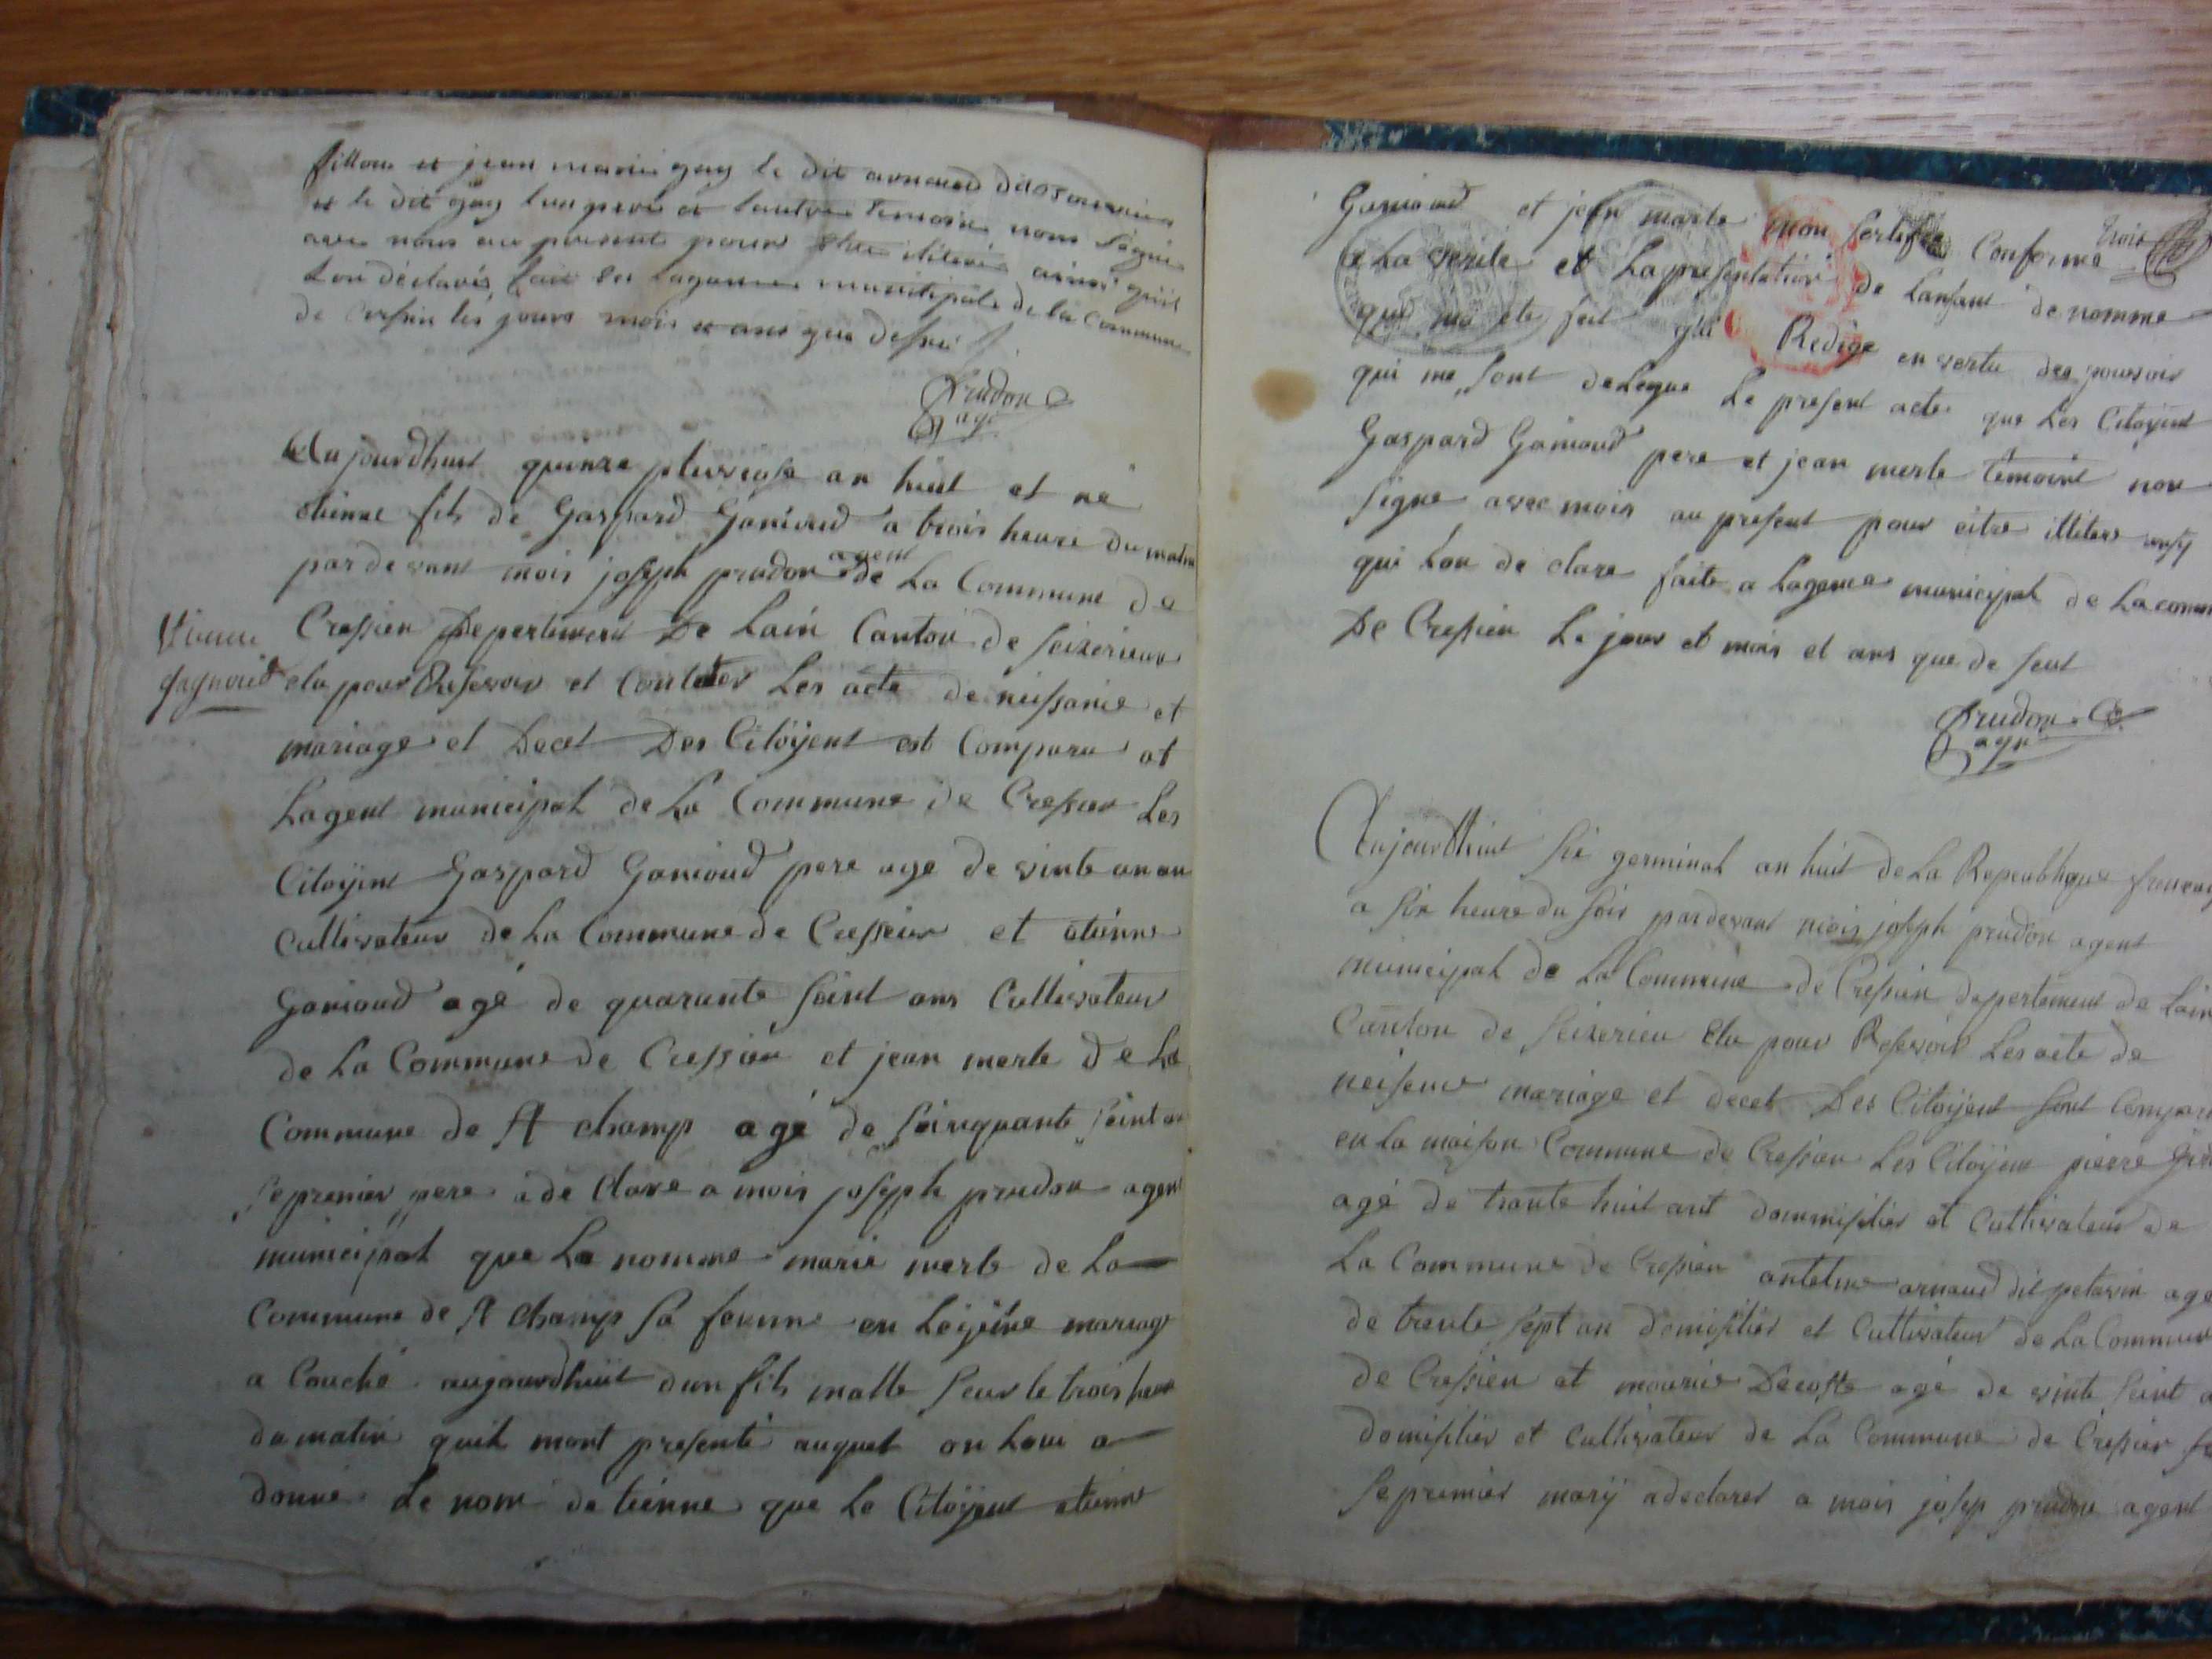 fillon et jean marie gay le dit arnaud
et le dit gay lun pere et lautre temoin nont Signé
avec nous au present pour etre iliteré ainsi quil
Lon déclaré fait en Lagance municipale de la commune
de Cressin les jours mois et ans que dessus
Prudon
agt
Aujourdhuit quinze pluviose an huit et né
etienne fils de Gaspard Ganioud a trois heure du matin
pardevant mois joseph prudon agent de La Commune de
Cressieu Depertement De Lain Canton de Seizerieux
Etienne
gagnioud
elu pour Resevoir et Les acte de neissance et
mariage et Decet Des Citoÿent est Comparu at
Lagent municipal de La Commune de Cressieu Les
Citoyent Gaspard Ganioud pere age de vinte un an
Cultivateur de La Commune de Cressieur et etienne
Ganioud agé de quarante seint ans Cultivateur
de La Commune de Cressieu et jean merle de La
Commune de St champ agé de seinquante seint an
se premier pere a de Clare a mois joseph prudon agent
municipal que La nomme marie merle de La
Commune de St champ sa femme en Legitime mariage
a Couché aujourdhuit dun fils malle seur le trois heure
du matin quil mont presenté auquel on Lou a
donné Le nom detienne que Le Citoÿent etienne
trois
Ganioud et jean marle mon sertifié Conforme
a La verite et La presentation de Lanfant denomme
qui ma ete fait Redige en vertu des pouvoir
qui me sont delegue Le present acte que Les Citoyent
Gaspard Ganioud pere et jean merle temoint non
signe avec mois au present pour eitre illitere
qui Lon de clare faite a Lagence municipal de La comm
De Cressieu Le jour et mois et ans que de seut
Prudon
agt
Aujourdhuit sis germinal an huit de La Republique
a six heure du soir pardevant mois joseph prudon agent
municipal de La Commune de Cressieu depertement de Lain
Canton de Seizerieu Elu pour Resevoir Les acte de
neisence mariage et decet Des Citoyent sont Compar
en La maison Commune de Cressieu Les Citoyent pierre
agé de trante huit ant dommisilier et Cultivateur de
La Commune de Cressieu antelme arnaud dit petavin age
de trente sept an domisilier et Cultivateur de La Commun
de Cressieu et mourice Decoste agé de vinte seint a
domisilier et Cultivateur de La Commune de Cressieu
se premier marÿ a declarer a mois josep prudon agent